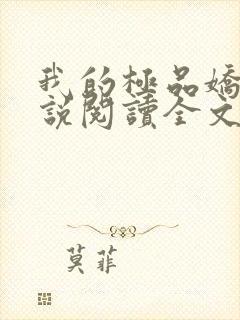 我的極品嬌
說閱讀全文
莫菲